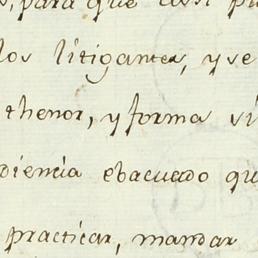 para que assi
los litigantes, y se
thenor, y forma
diencia ebacuado qu
practicar, mandar